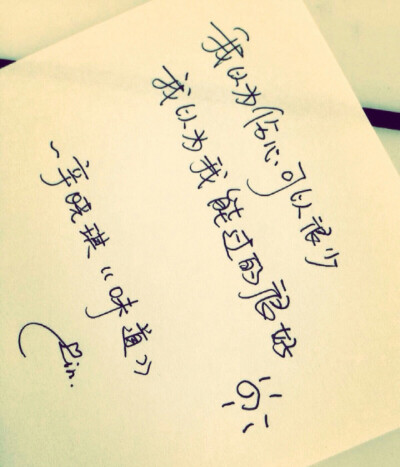 我以为伤心可以很少
我以为我能过的很好
~辛晓琪《味道》
Lin.